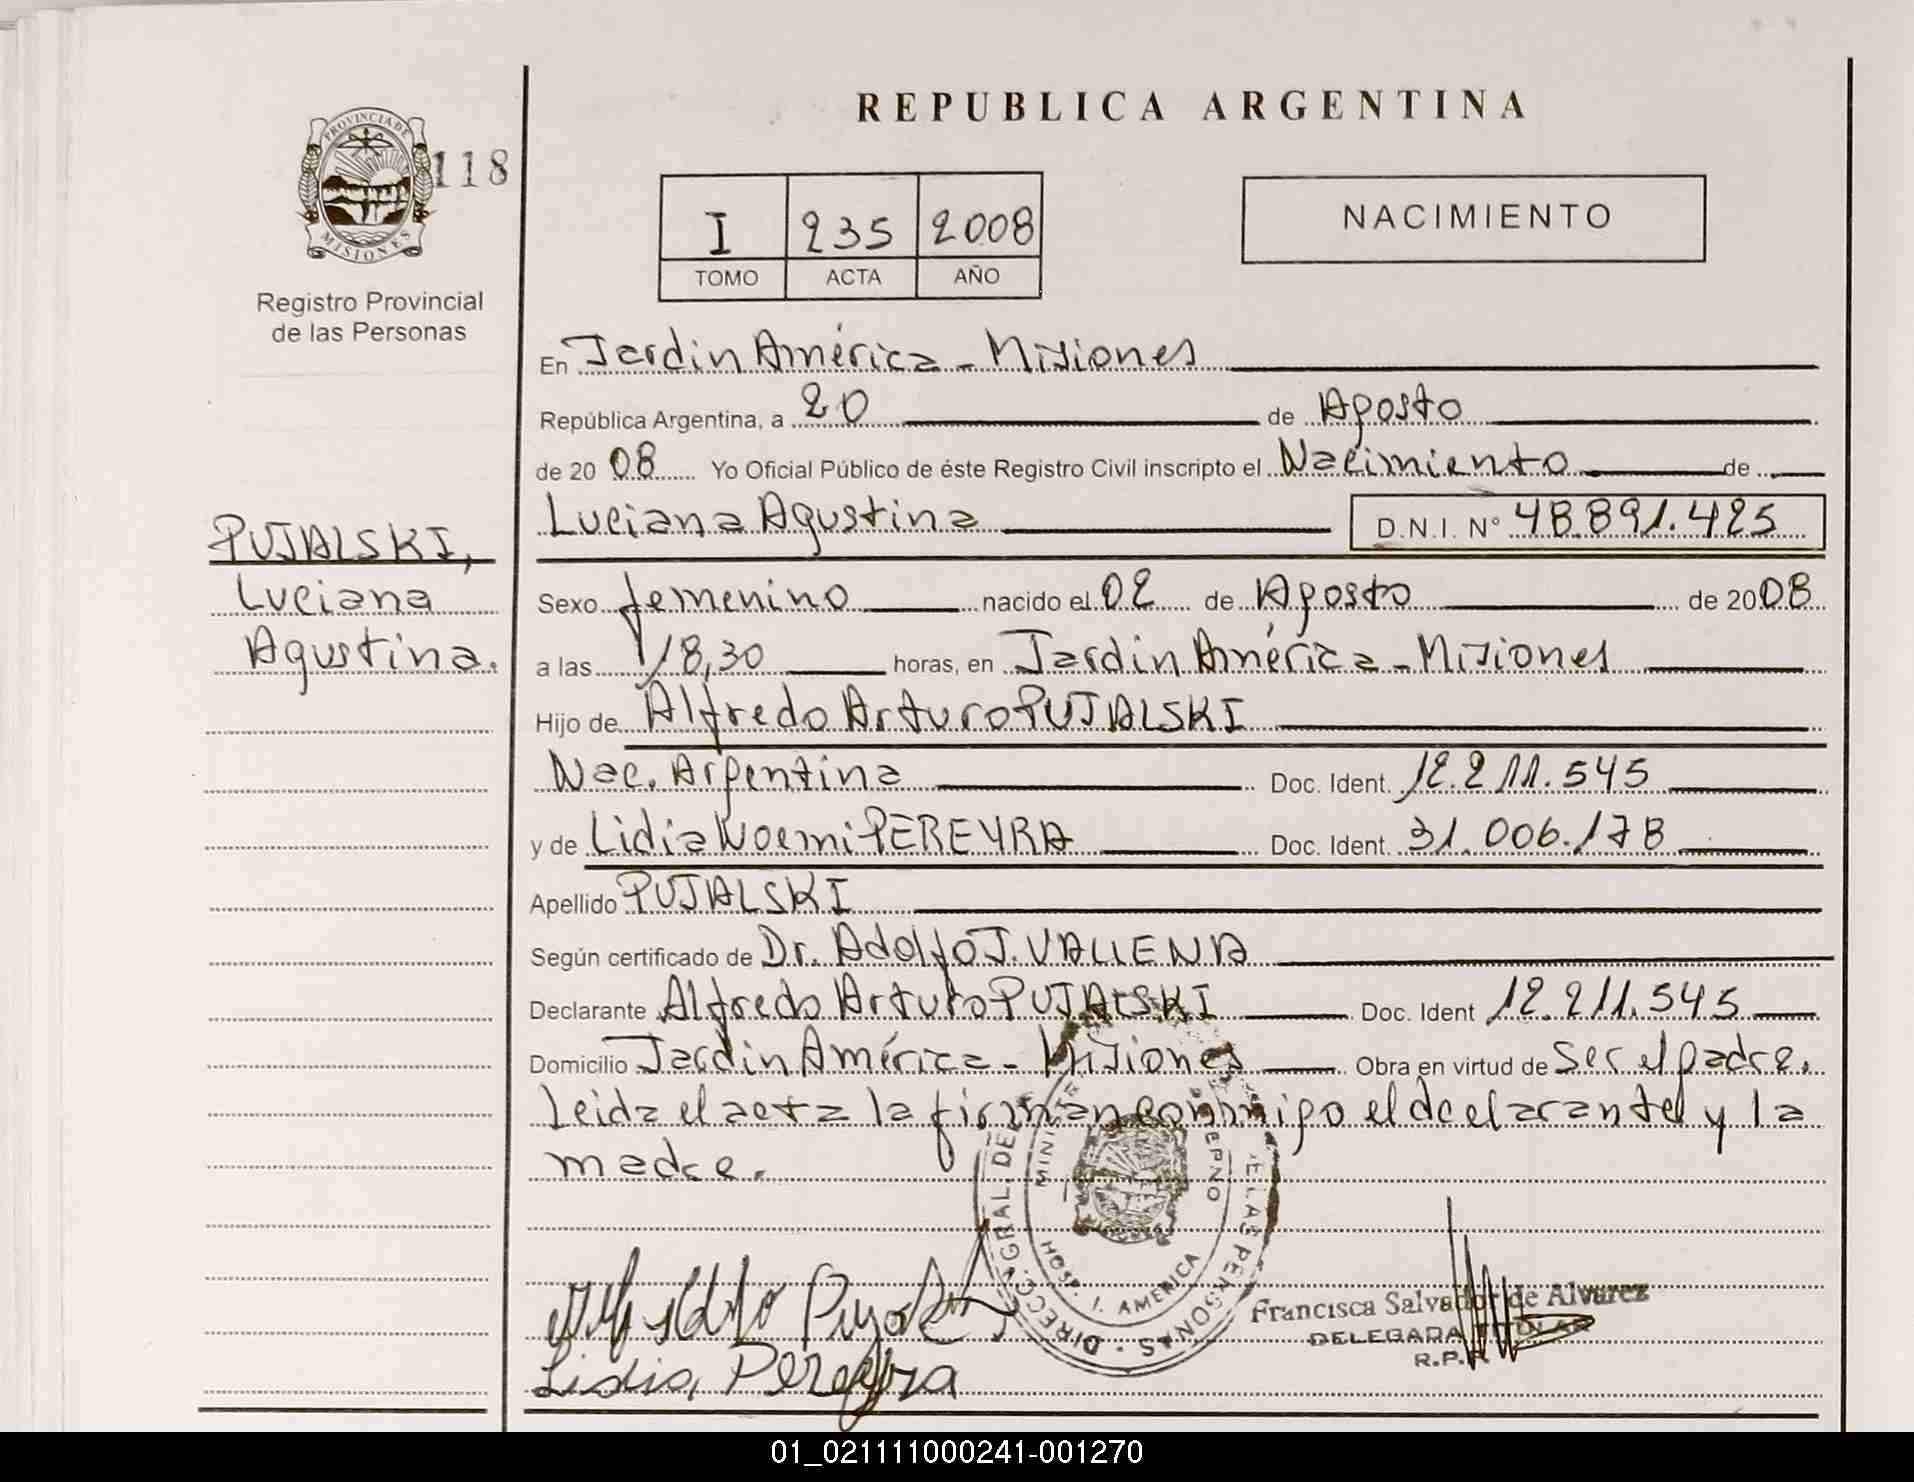 REPUBLICA ARGENTINA
PROVINCIA DE
MISIONES
118
Registro Provincial
de las Personas
I 235 2008
TOMO ACTA AÑO
NACIMIENTO
En Jardin América - Misiones
República Argentina, a 20 de Agosto
de 20 08 Yo Oficial Público de éste Registro Civil inscripto el Nacimiento de
Luciana Agustina D.N.I. N° 48.891.425
PUJALSKI,
Luciana
Agustina.
Sexo femenino nacido el 02 de Agosto de 20 08
a las 18,30 horas, en Jardin América - Misiones
Hijo de Alfredo Arturo PUJALSKI
Nac. Argentina Doc. Ident. 12.211.545
y de Lidia Noemi PEREYRA Doc. Ident. 31.006.178
Apellido PUJALSKI
Según certificado de Dr. Adolfo J. VALLENA
Declarante Alfredo Arturo PUJALSKI Doc. Ident 12.211.545
Domicilio Jardin América - Misiones Obra en virtud de Ser el padre.
Leida el acta la firman conmigo el declarante y la
madre.
DIRECC. GRAL. DE LAS PERSONAS
HOSP. J. AMERICA
Francisca Salvador de Alvarez
DELEGADA TITULAR
R.P.P.
Lidia, Pereyra
01_021111000241-001270